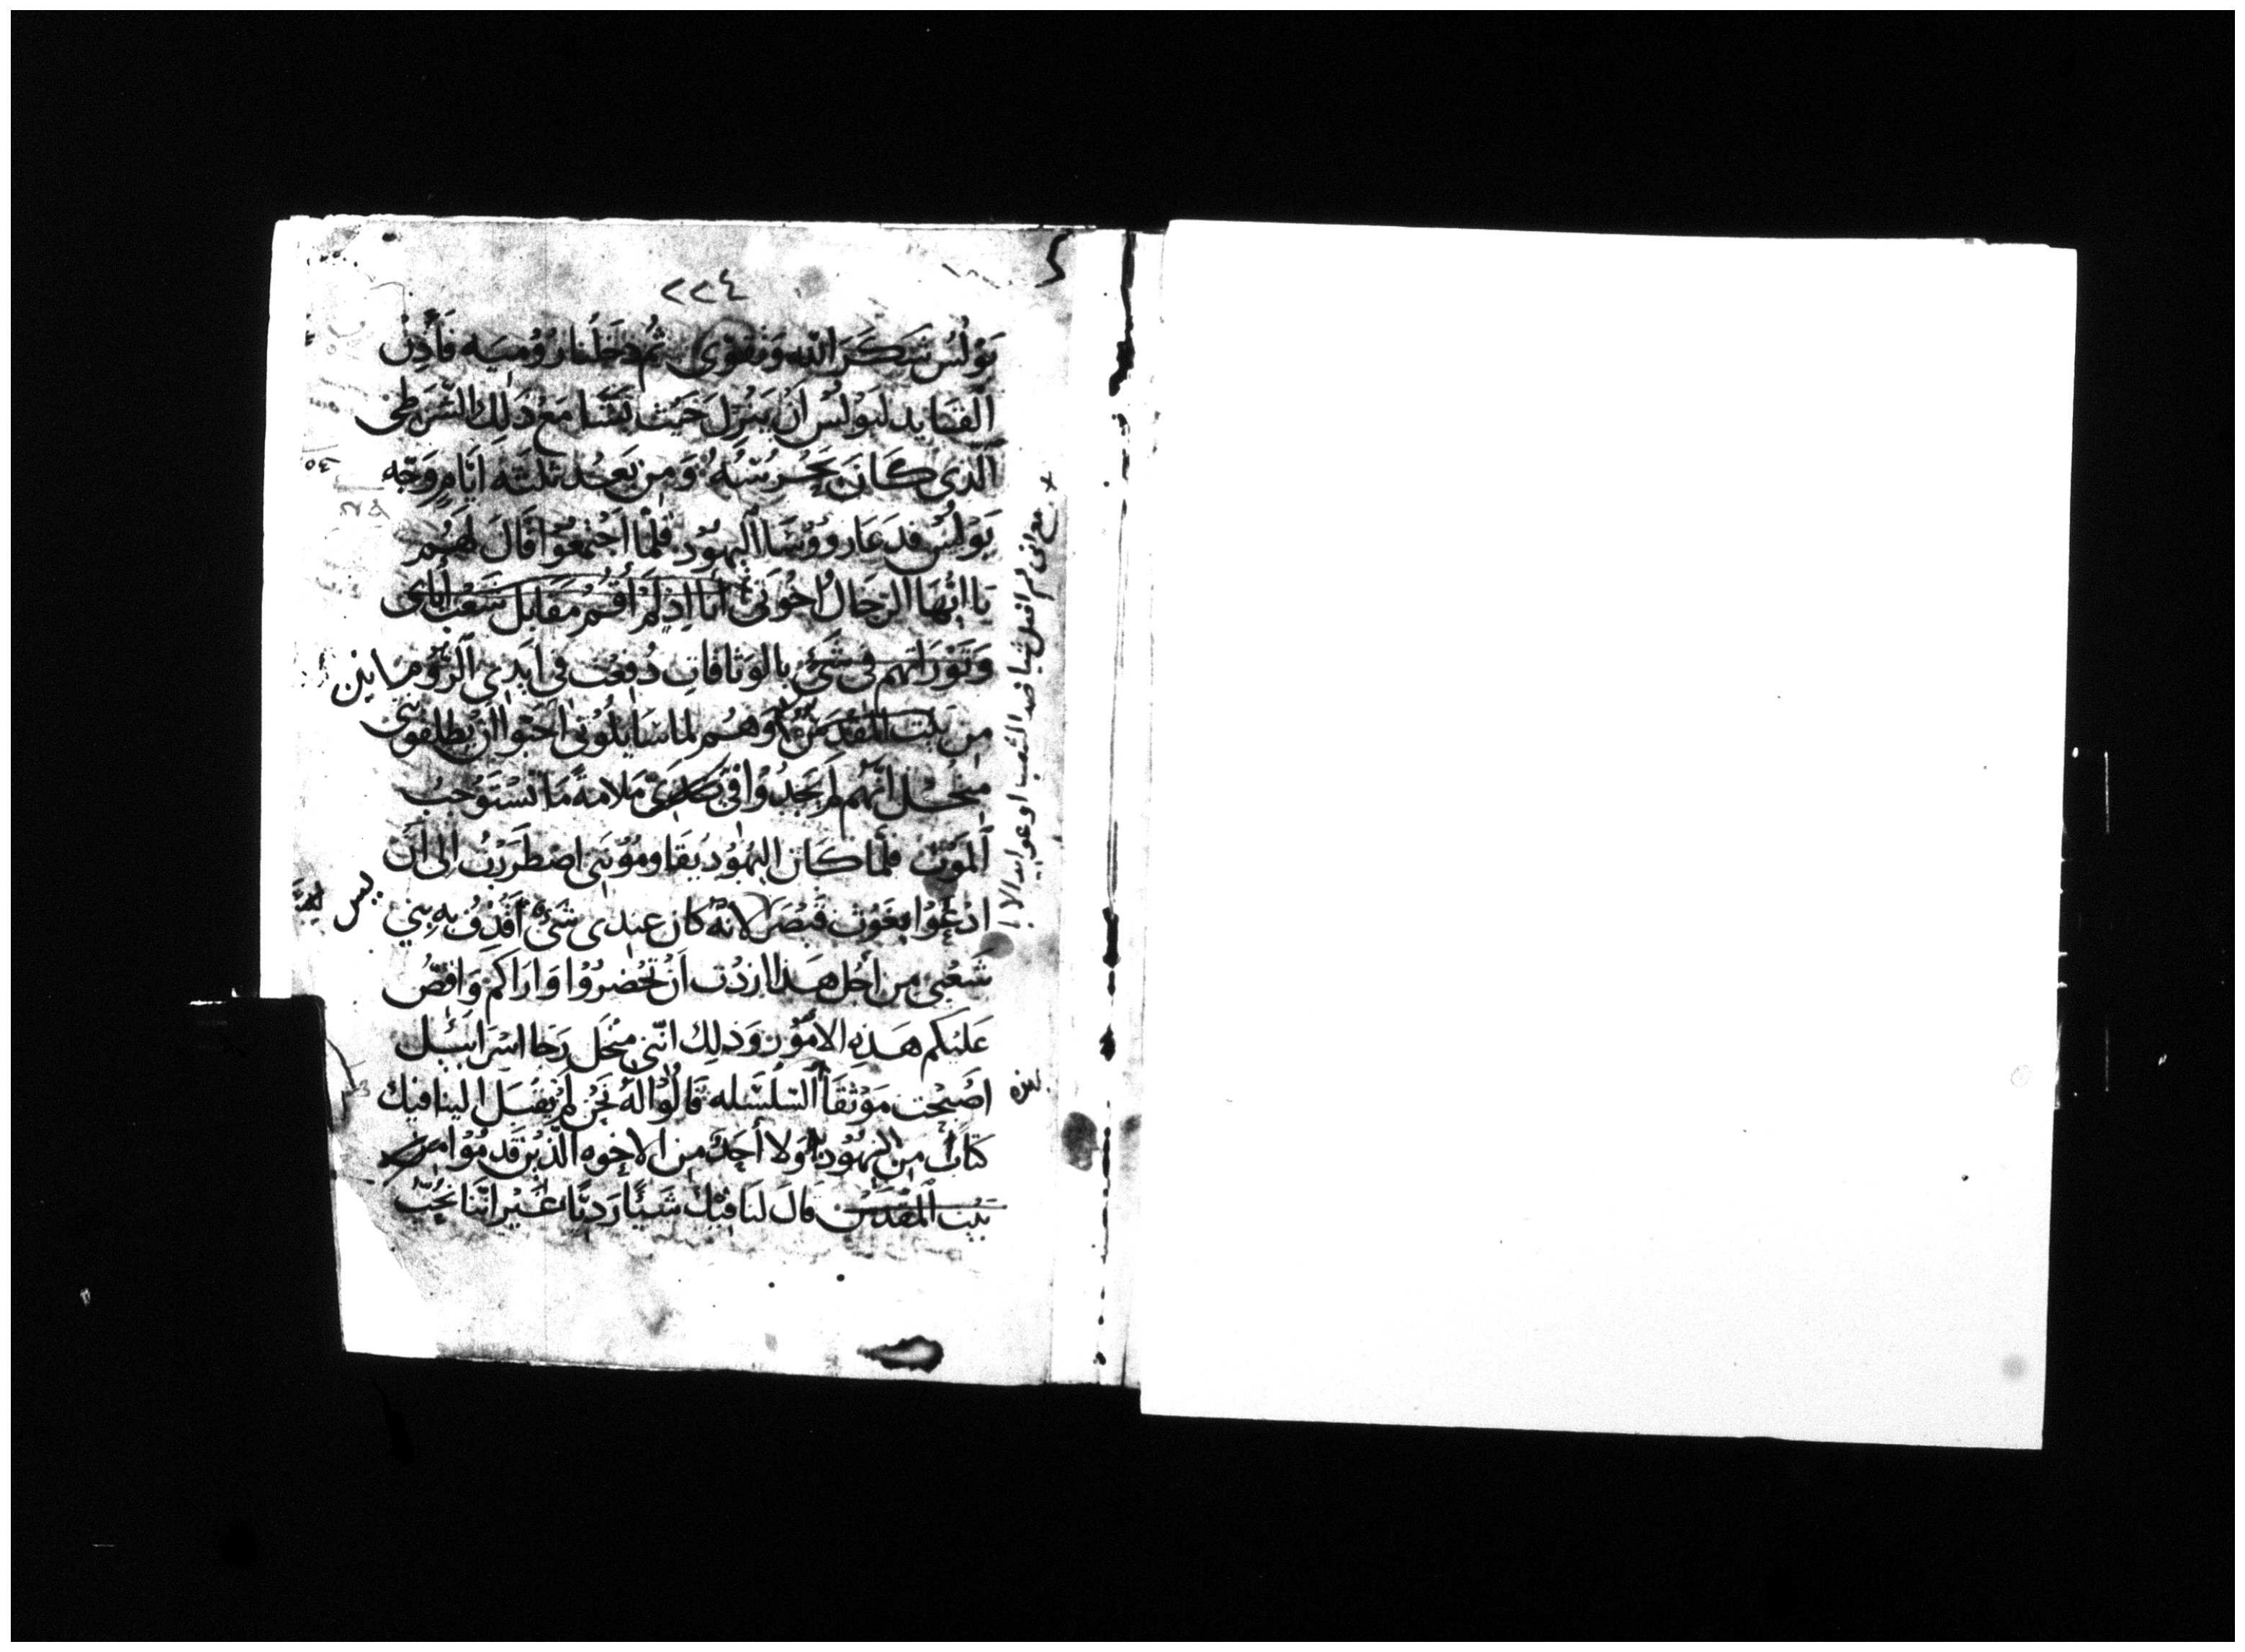 ٢٢٤
بَوْلُس شَكَرَ اللّه وَتقوى ثُم دخَلنا رُوُميَه فَأَذِنَ
القايد لبَوْلسْ ان يَنْزِلَ حَيث يَشَا مَعْ ذَلِك الشّرَطى
الّذى كَانَ يَحْرسُهُ وَمِن بَعد ثلثَه ايّامٍ وَجّه
بَوْلُسْ فدَعَا رووُسَا اليهوُد فلمّا اَجْتمعُوا قالَ لهَمُ
يا ايُّهَا الرجَالُ اخْوتى أنا اِذ لَمْ اُقُم مقَابل شَعْب أباىَ
وَتوْرَاتهم فى شَىْ بالوثاقاتِ دُفِعْت فى ايَدى الرُّومانين
مِن بَيْت المقْدسْ وَهُم لما سَايلُوُنى احَبّوا ان يُطلقوُنى
مِنْ اجل انّهم لم يَجدُوا فى مَلامةً مَا تَسْتَوْجبُ
الموْت فلمّا كان اليهوُد يُقاومُوُنَنى اضطَررْتُ الى اَن
ادْعُوا بغَوْث قَيْصَر لا انّه كان عندى شَىْ اَقْذِفُ به بنى
شَعْبى مِن اَجْل هَذا اردْت اَنْ تحْضرُوُا وَاراكم وَاقصُّ
عَليْكم هَذِه الامُوُر وَذلِك انّنى مِنْ اجل رَجا اسْرَاييل
اصْبَحْت موْثقاً السّلسَله قالُوا لهُ نَحْن لم يقبَل الينا فيك
كتابُ مِن اليهُوُد وَلا أحَدُ مِن الاخوه الّذيْن قدمُوُا مِن
بَيْت المقْدسْ قالَ لنَا فيْك شَيئًا رَديًا غيْر انّنا نحُبّ
مع انى لم افعل شيا ضد الشعب او عوايد الابا